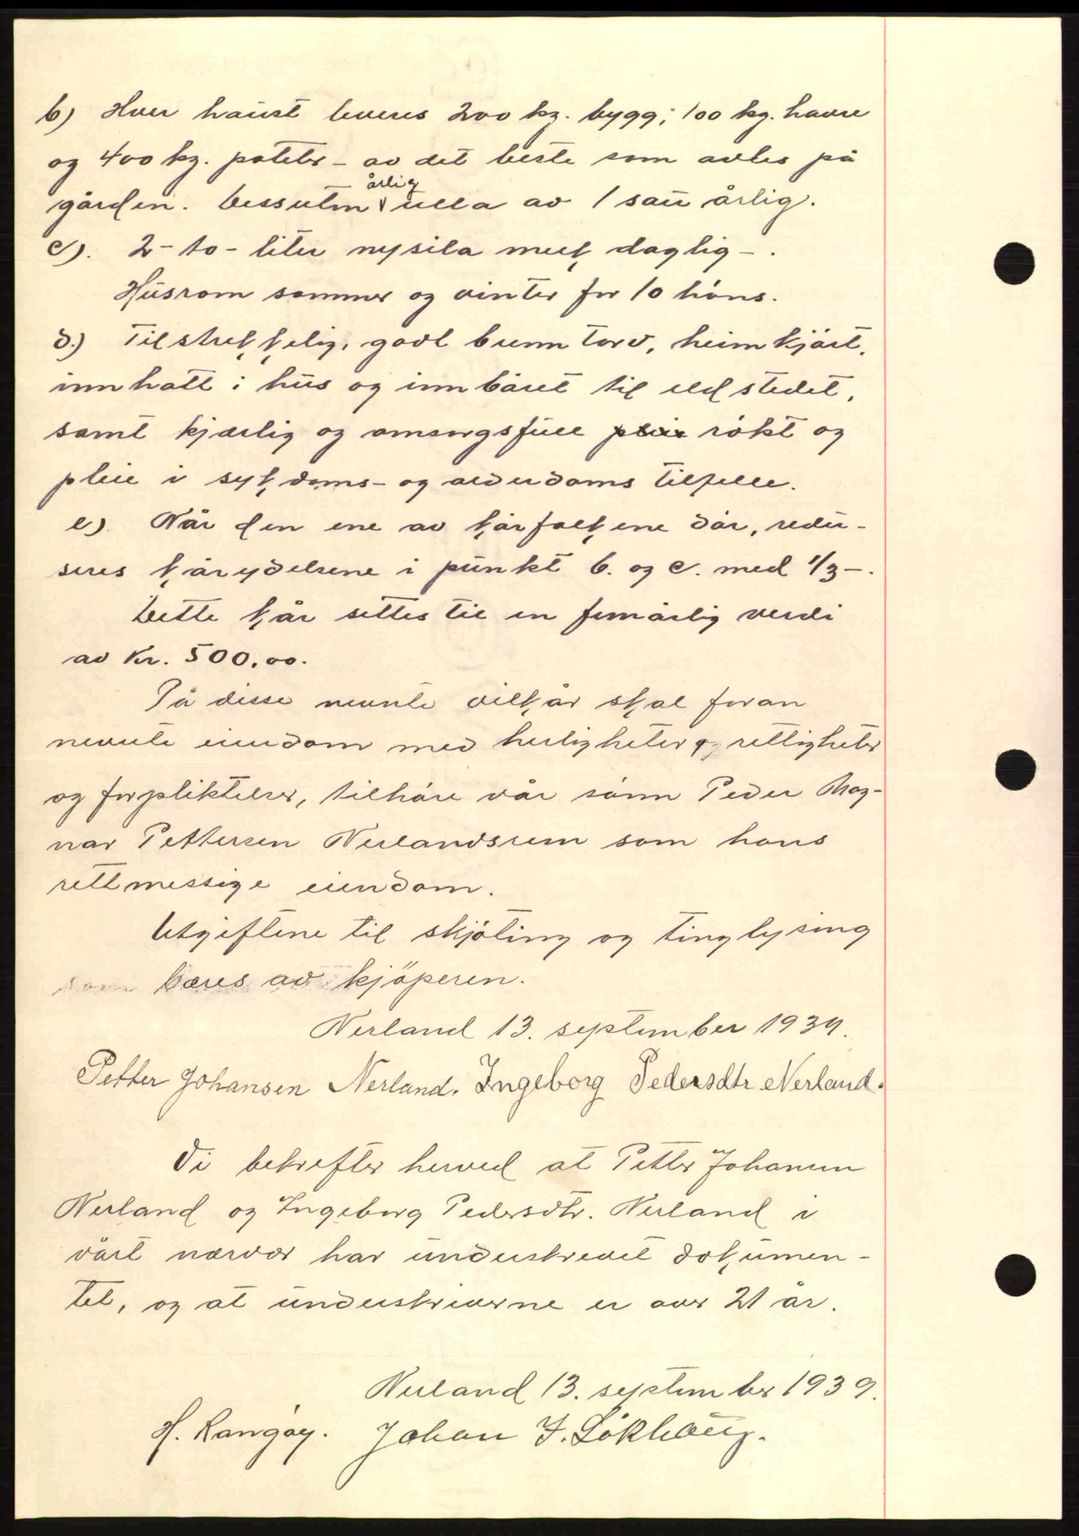 b) Hver haust leveres 200 kg. bygg, 100 kg. havre
og 400 kg. poteter - av det beste som avles på
gården. Dessuten årlig ulla av 1 sau årlig.
c). 2 - to - liter nysila melk daglig - .
Husrom sommer og vinter for 10 höns.
d.) Tilstrekkelig, godt brenntorv, heimkjört,
innhatt i hus og innbåret til eldstedet,
samt kjærlig og omsorgsfull rökt og
pleie i sykdoms- og alderdoms tilfelle.
e). Når den ene av kårfolkene dör, redu-
seres kårydelsene i punkt b. og c. med 1/3 - .
Dette kår settes til en femårlig verdi
av Kr. 500,00.
På disse nevnte vilkår skal foran
nevnte eiendom med herligheter og rettigheter
og forpliktelser, tilhöre vår sönn Peder Mag-
nar Pettersen Nerlandsrem som hans
rettmessige eiendom.
Utgiftene til skjöting og tinglysing
som bæres av kjöperen.
Nerland 13. september 1939.
Petter Johansen Nerland. Ingeborg Pedersdtr. Nerland.
Vi bekrefter herved at Petter Johansen
Nerland og Ingeborg Pedersdtr. Nerland i
vårt nærvær har underskrevet dokumen-
tet, og at underskriverne er over 21 år.
Nerland 13. september 1939.
H. Rangöy. Johan J. Lökhaug.